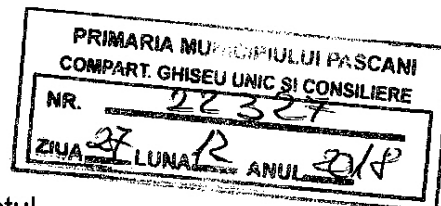 PRIMARIA MUNICIPIULUI PASCANI
COMPART. GHISEU UNIC ȘI CONSILIERE
NR. 22327
ZIUA 27 LUNA 12 ANUL 2018